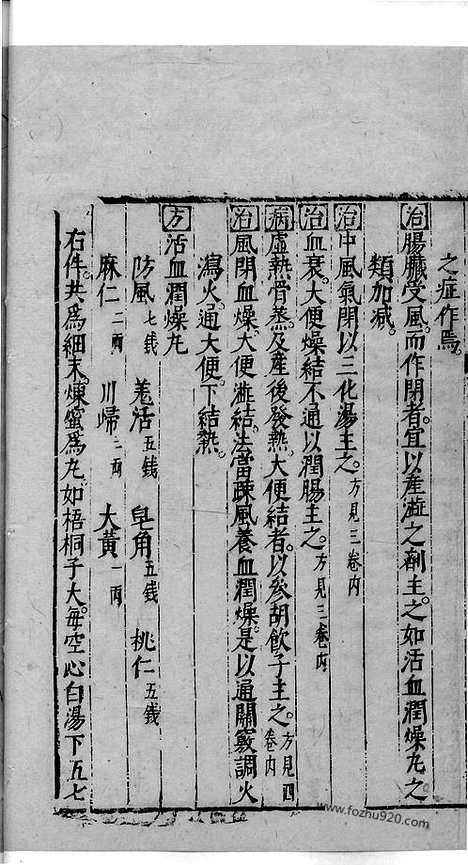 之症作焉
治腸臟受風而作閉者。宜以產澁之劑主之。如活血潤燥丸之
類加減。
治中風氣閉以三化湯主之。方見三卷内
治血衰大便燥結不通以潤腸主之。方見三卷内
病虛熱骨蒸。及產後發熱。大便結者。以參胡飲子主之。方見四卷内
治風閉血燥。大便澁結。法當疎風養血潤燥。是以通關竅調火
瀉火。通大便。下結熱。
方活血潤燥丸
防風七錢 羗活五錢 皂角五錢 桃仁五錢
麻仁二兩 川歸二兩 大黄一兩
右件。共爲細末。煉蜜爲丸。如梧桐子大。每空心白湯下五七
www.fozhu920.com